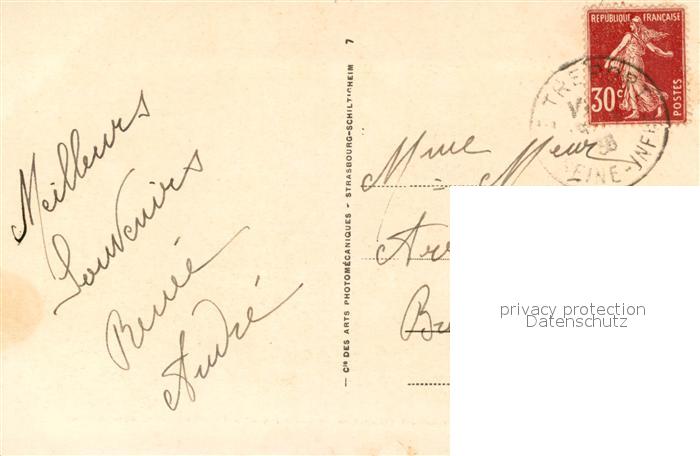 Meilleurs
Souvenirs
Renée
André
— Cie DES ARTS PHOTOMÉCANIQUES - STRASBOURG-SCHILTIGHEIM 7
RÉPUBLIQUE FRANÇAISE
30c
POSTES
LE TREPORT
SEINE-INFRE
Mme
privacy protection
Datenschutz